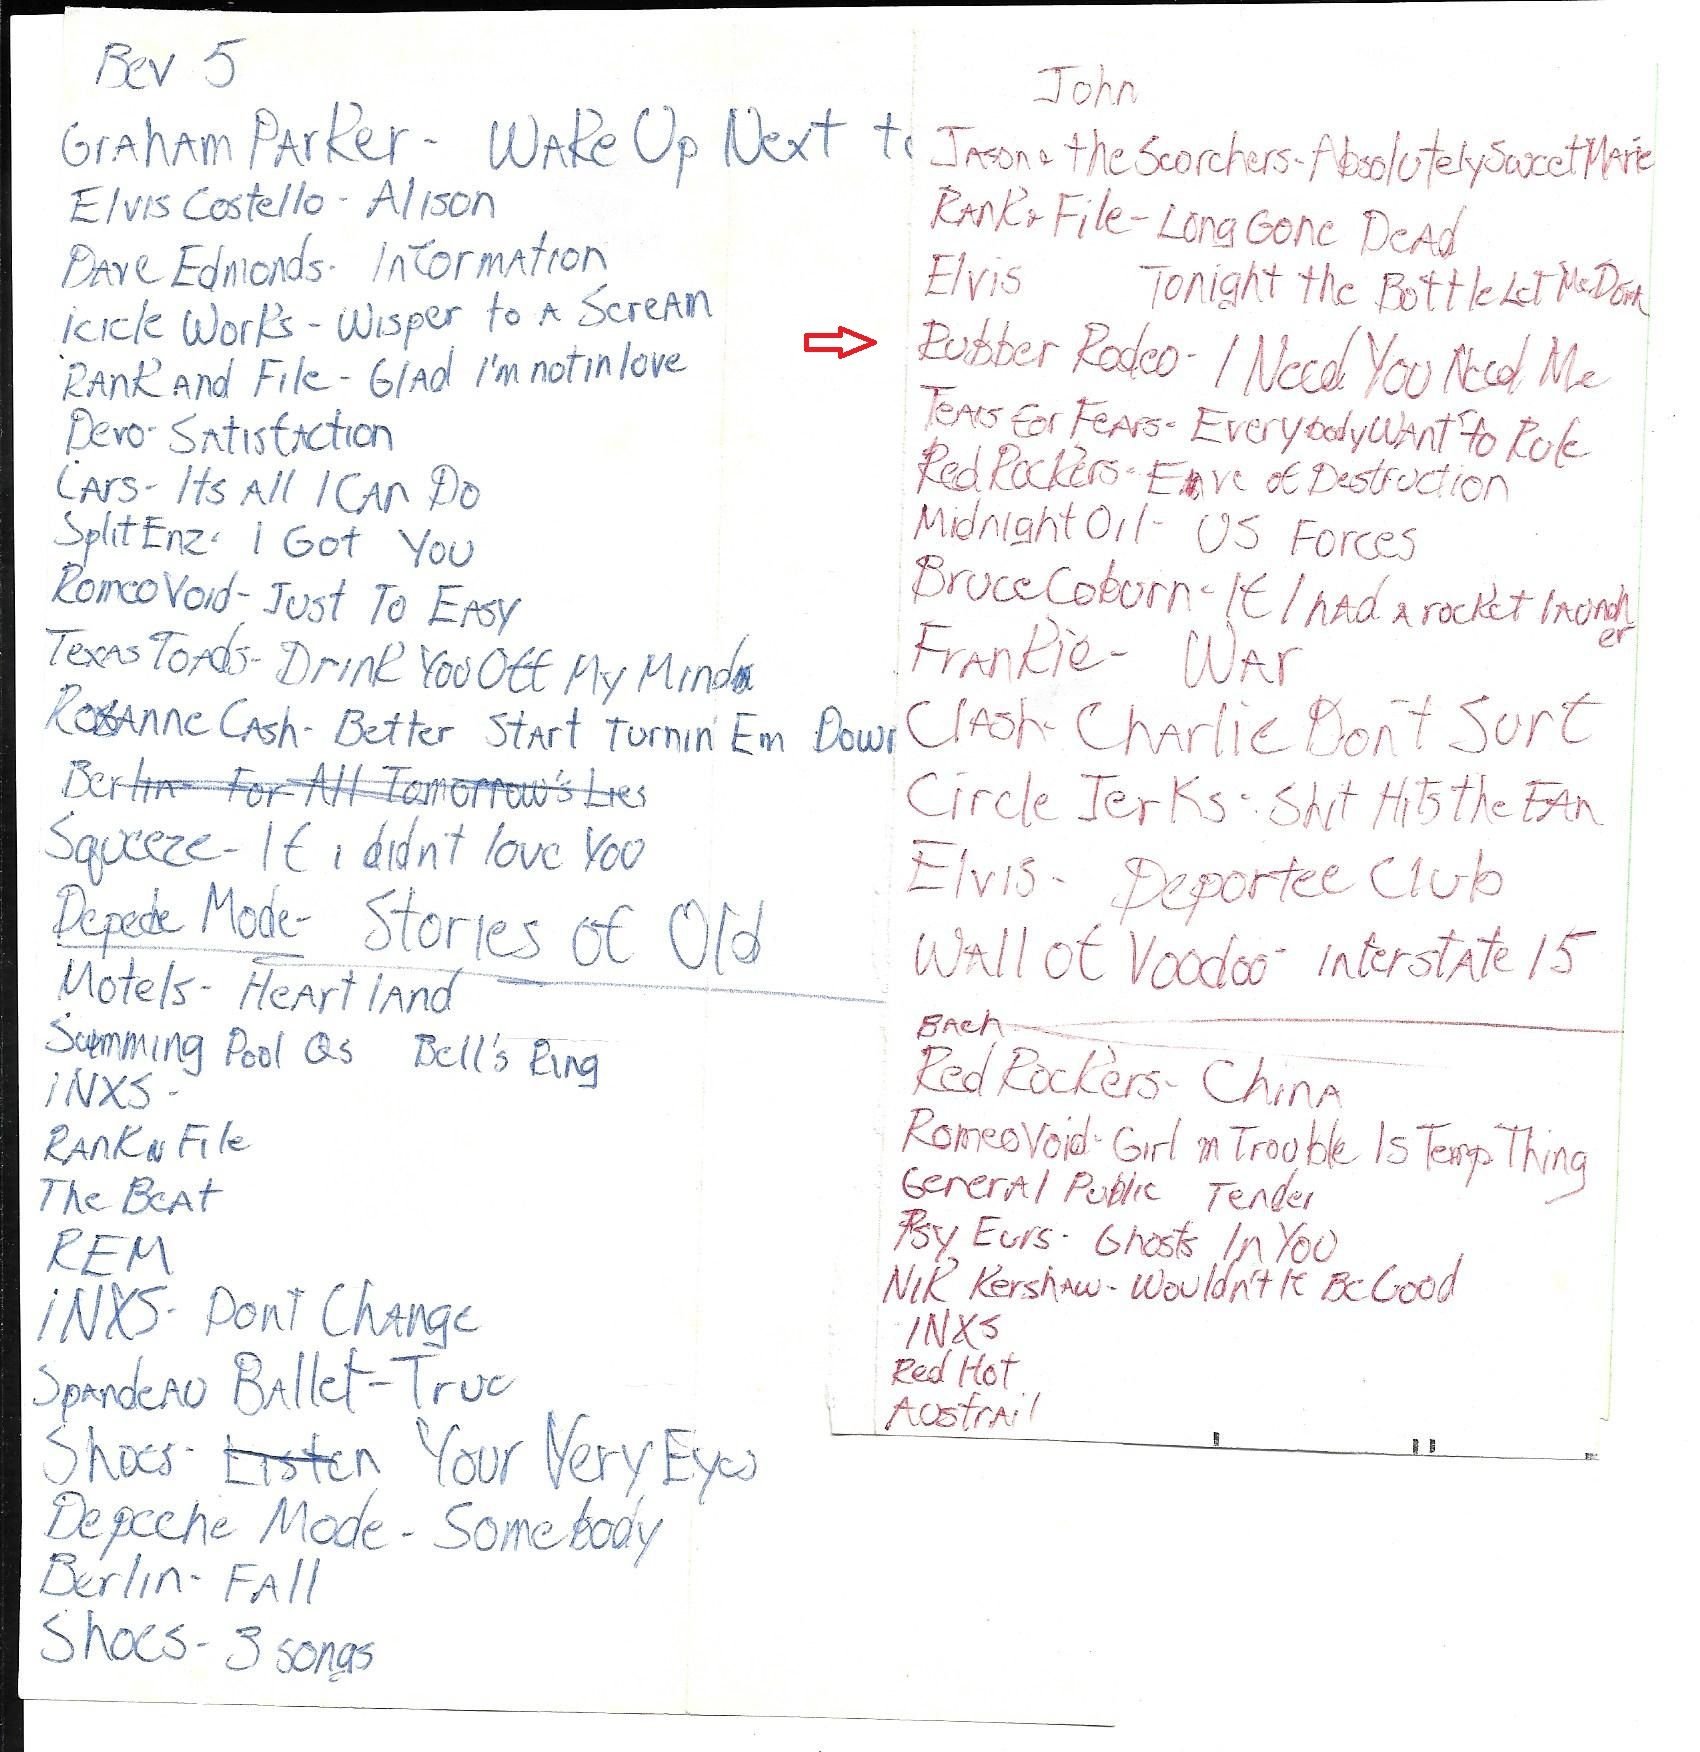 Bev 5
Graham Parker - Wake Up Next to
Elvis Costello - Alison
Dave Edmonds - Information
icicle Works - Wisper to A Scream
Rank and File - Glad i'm not in love
Devo - Satisfaction
Cars - Its All I Can Do
Split Enz - I Got You
Romeo Void - Just To Easy
Texas Toads - Drink You Off My Mind
Rosanne Cash - Better Start Turnin' Em Down
Berlin - For All Tomorrow's Lies
Squeeze - If i didn't love You
Depede Mode - Stories of Old
Motels - Heartland
Swimming Pool Qs Bell's Ring
INXS -
Rank N File
The Beat
REM
INXS - Dont Change
Spandeau Ballet - True
Shoes - Listen Your Very Eyes
Depeche Mode - Somebody
Berlin - Fall
Shoes - 3 songs
John
Jason & the Scorchers - Absolutely Sweet Marie
Rank & File - Long Gone Dead
Elvis Tonight the Bottle Let Me Down
Rubber Rodeo - I Need You Need Me
Tears for Fears - Everybody Want to Rule
Red Rockers - Eve of Destruction
Midnight Oil - US Forces
Bruce Coburn - If I had a rocket launcher
Frankie - War
Clash - Charlie Don't Surf
Circle Jerks - Shit Hits the Fan
Elvis - Deportee Club
Wall of Voodoo - Interstate 15
Bach
Red Rockers - China
Romeo Void - Girl in Trouble Is Temp Thing
General Public Tender
Psy Furs - Ghosts In You
Nik Kershaw - Wouldn't It Be Good
INXS
Red Hot
Austrail